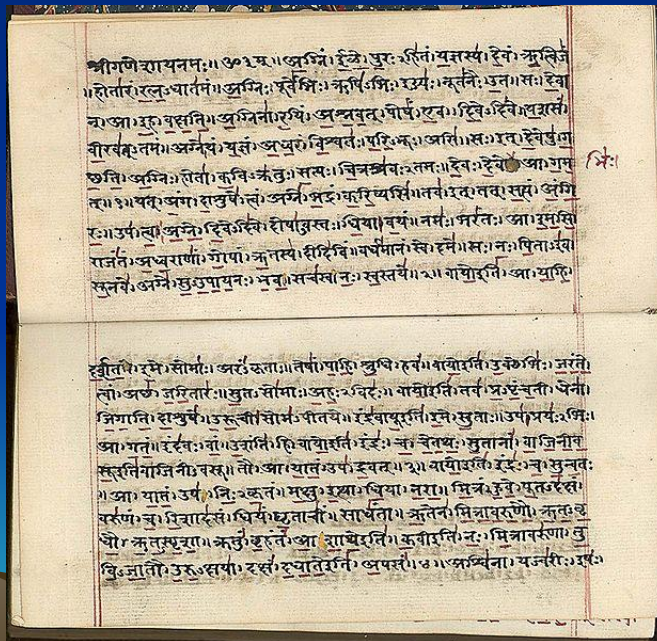 श्रीगणेशायनमः॥ॐ३म्॥अग्निं।ईळे।पुरःऽहितं।यज्ञस्य।देवं।ऋत्विजं
॥होतारं।रत्नऽधातमं॥अग्निः।पूर्वेभिः।ऋषिऽभिः।ईड्यः।नूतनैः।उत॥सः।देवा
न्।आ।इह।वक्षति॥अग्निना।रयिं।अश्नवत्।पोषं।एव।दिवेऽदिवे॥यशसं।
वीरवत्ऽतमं॥अग्ने।यं।यज्ञं।अध्वरं।विश्वतः।परिऽभूः।असि॥सः।इत्।देवेषु।ग
च्छति॥अग्निः।होता।कविऽक्रतुः।सत्यः।चित्रश्रवःऽतमः॥देवः।देवे।आ।गम भिः।
त्॥१॥यत्।अंग।दाशुषे।त्वं।अग्ने।भद्रं।करिष्यसि॥तव।इत्।तत्।सत्यं।अंगि
रः॥उप।त्वा।अग्ने।दिवेऽदिवे।दोषाऽवस्तः।धिया।वयं॥नमः।भरंतः।आ।इमसि॥
राजंतं।अध्वराणां।गोपां।ऋतस्य।दीदिविं॥वर्धमानं।स्वे।दमे॥सः।नः।पिताऽइव
सूनवे।अग्ने।सुऽउपायनः।भव॥सचस्व।नः।स्वस्तये॥२॥वायोइति।आ।याहि।
दर्शत।इमे।सोमाः।अरंऽकृताः॥तेषां।पाहि।श्रुधि।हवं॥वायोइति।उक्थेभिः।जरंते।
त्वां।अच्छ।जरितारः॥सुतऽसोमाः।अहःऽविदः॥वायोइति।तव।प्रऽपृंचती।धेना।
जिगाति।दाशुषे॥उरूची।सोमऽपीतये॥इंद्रवायूइति।इमे।सुताः॥उप।प्रयःऽभिः।
आ।गतं॥इंदवः।वां।उशंति।हि॥वायोइति।इंद्रः।च।चेतथः।सुतानां।वाजिनीव
सूइतिवाजिनीऽवसू॥तौ।आ।यातं।उप।द्रवत्॥३॥वायोइति।इंद्रः।च।सुन्वतः
॥आ।यातं।उप।निःऽकृतं॥मक्षु।इत्था।धिया।नरा॥मित्रं।हुवे।पूतऽदक्षं।
वरुणं।च।रिशादसं॥धियं।घृताचीं।साधंता॥ऋतेन।मित्रावरुणौ।ऋतऽवृ
धौ।ऋतऽस्पृशा॥क्रतुं।बृहंतं।आशाथेइति॥कवीइति।नः।मित्रावरुणा।तु
विऽजातौ।उरुऽक्षया॥दक्षं।दधातेइति।अपसं॥४॥अश्विना।यज्वरीः।इषः।